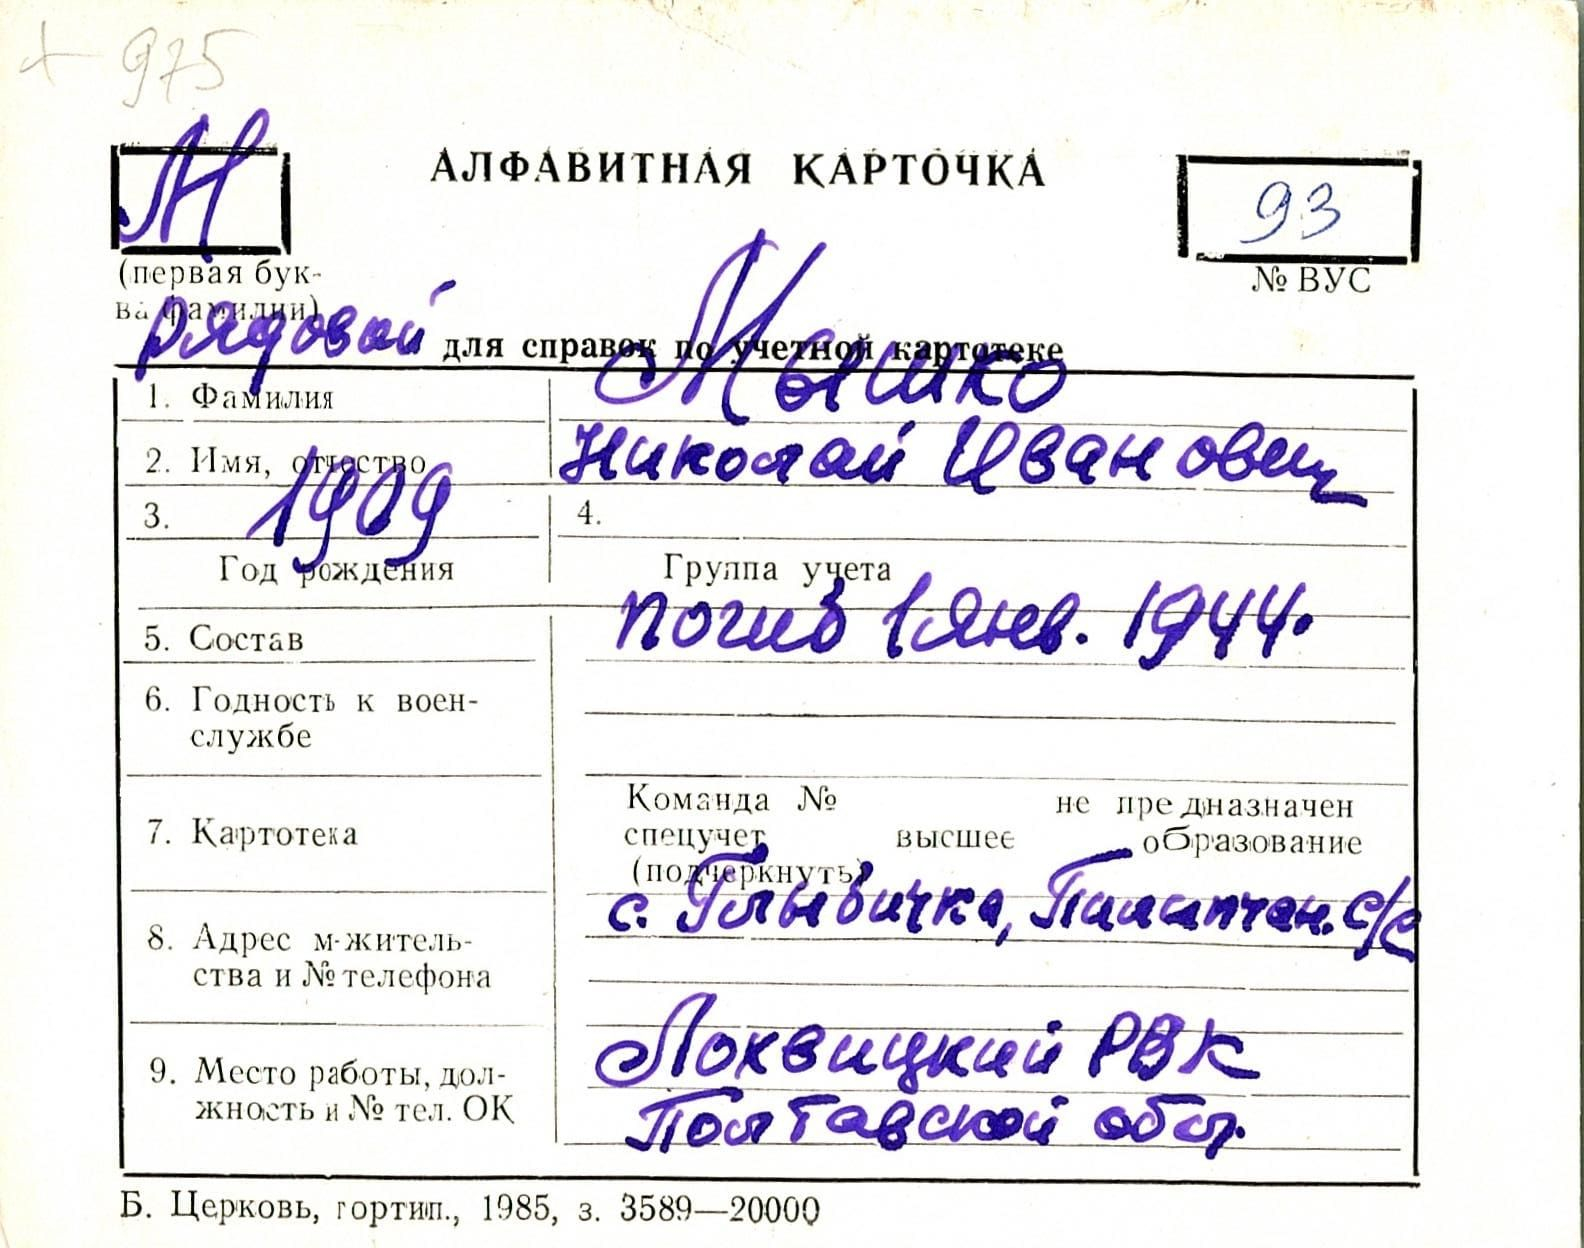 + 975
М
АЛФАВИТНАЯ КАРТОЧКА
93
(первая бук-
ва фамилии)
№ ВУС
рядовой
для справок по учетной картотеке
1. Фамилия
Мышко
2. Имя, отчество
Николай Иванович
3. 1909
4.
Год рождения
Группа учета
погиб 1 янв. 1944.
5. Состав
6. Годность к воен-
службе
7. Картотека
Команда № не предназначен
спецучет высшее образование
(подчеркнуть)
с. Глыбичка, Пилипчан. с/с
8. Адрес м-житель-
ства и № телефона
Лохвицкий РВК
9. Место работы, дол-
жность и № тел. ОК
Полтавской обл.
Б. Церковь, гортип., 1985, з. 3589—20000